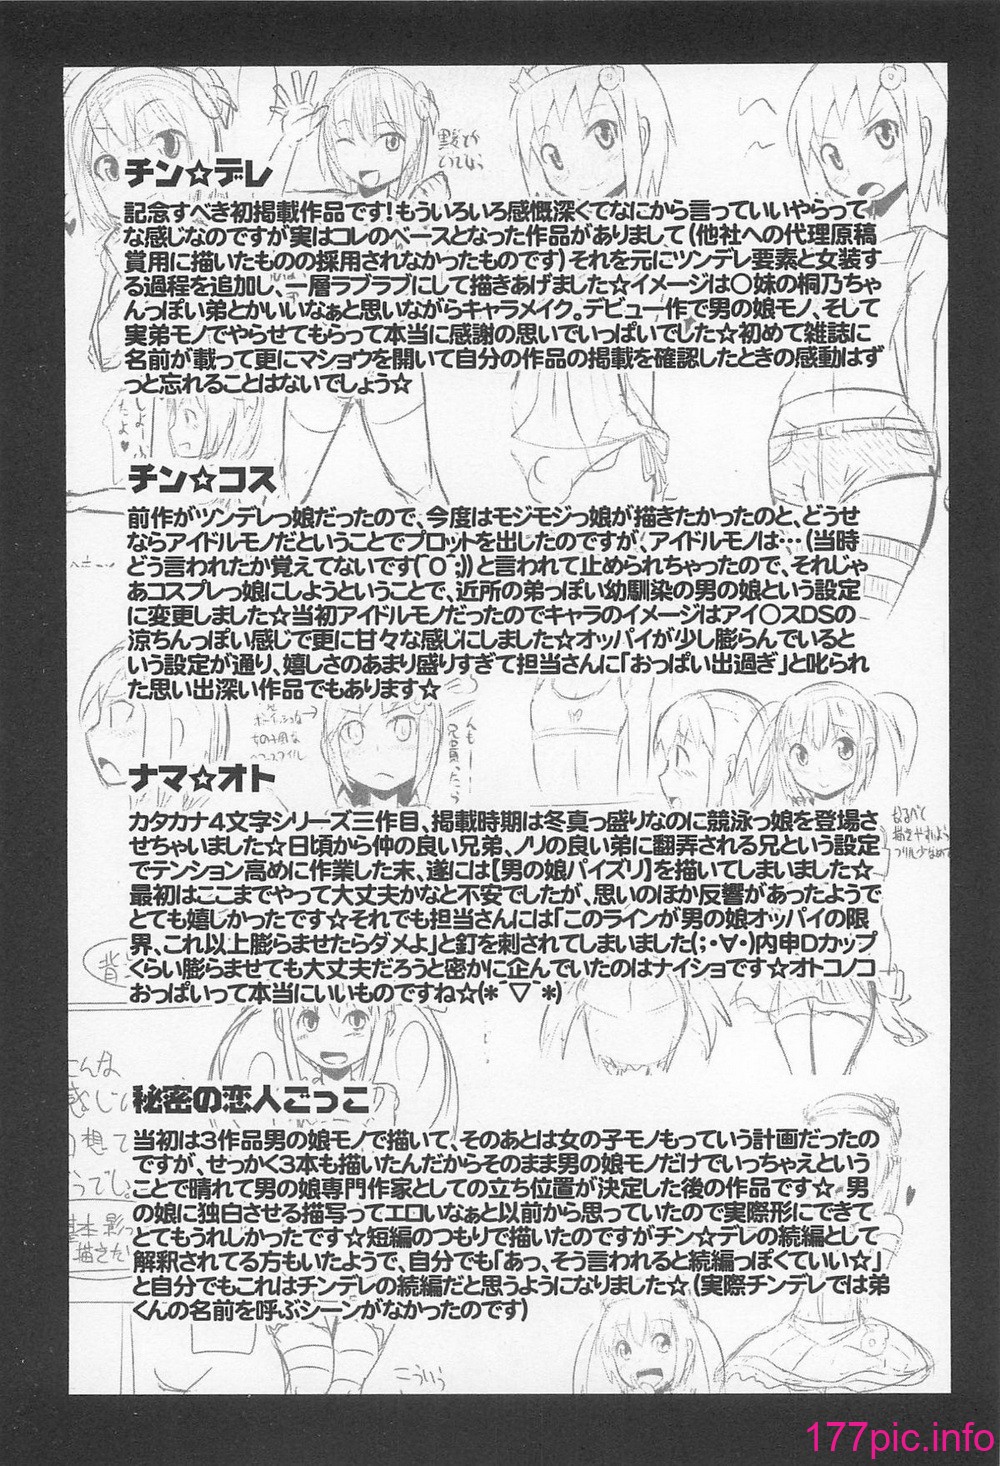 チン☆デレ
記念すべき初掲載作品です!もういろいろ感慨深くてなにから言っていいやらって
な感じなのですが実はコレのベースとなった作品がありまして(他社への代理原稿
賞用に描いたものの採用されなかったものです)それを元にツンデレ要素と女装す
る過程を追加し、一層ラブラブにして描きあげました☆イメージは〇妹の桐乃ちゃ
んっぽい弟とかいいなぁと思いながらキャラメイク。デビュー作で男の娘モノ、そして
実弟モノでやらせてもらって本当に感謝の思いでいっぱいでした☆初めて雑誌に
名前が載って更にマショウを開いて自分の作品の掲載を確認したときの感動はず
っと忘れることはないでしょう☆
チン☆コス
前作がツンデレっ娘だったので、今度はモジモジっ娘が描きたかったのと、どうせ
ならアイドルモノだということでプロットを出したのですが、アイドルモノは…(当時
どう言われたか覚えてないです(^O^;))と言われて止められちゃったので、それじゃ
あコスプレっ娘にしようということで、近所の弟っぽい幼馴染の男の娘という設定
に変更しました☆当初アイドルモノだったのでキャラのイメージはアイ〇スDSの
涼ちんっぽい感じで更に甘々な感じにしました☆オッパイが少し膨らんでいると
いう設定が通り、嬉しさのあまり盛りすぎて担当さんに「おっぱい出過ぎ」と叱られ
た思い出深い作品でもあります☆
ナマ☆オト
カタカナ4文字シリーズ三作目、掲載時期は冬真っ盛りなのに競泳っ娘を登場さ
せちゃいました☆日頃から仲の良い兄弟、ノリの良い弟に翻弄される兄という設定
でテンション高めに作業した末、遂には【男の娘パイズリ】を描いてしまいました☆
最初はここまでやって大丈夫かなと不安でしたが、思いのほか反響があったようで
とても嬉しかったです☆それでも担当さんには「このラインが男の娘オッパイの限
界、これ以上膨らませたらダメよ」と釘を刺されてしまいました(;・∀・)内申Dカップ
くらい膨らませても大丈夫だろうと密かに企んでいたのはナイショです☆オトコノコ
おっぱいって本当にいいものですね☆(*´▽`*)
秘密の恋人ごっこ
当初は3作品男の娘モノで描いて、そのあとは女の子モノもっていう計画だったの
ですが、せっかく3本も描いたんだからそのまま男の娘モノだけでいっちゃえという
ことで晴れて男の娘専門作家としての立ち位置が決定した後の作品です☆ 男
の娘に独白させる描写ってエロいなぁと以前から思っていたので実際形にできて
とてもうれしかったです☆短編のつもりで描いたのですがチン☆デレの続編として
解釈されてる方もいたようで、自分でも「あっ、そう言われると続編っぽくていい☆」
と自分でもこれはチンデレの続編だと思うようになりました☆(実際チンデレでは弟
くんの名前を呼ぶシーンがなかったのです)
こういう
177pic.info